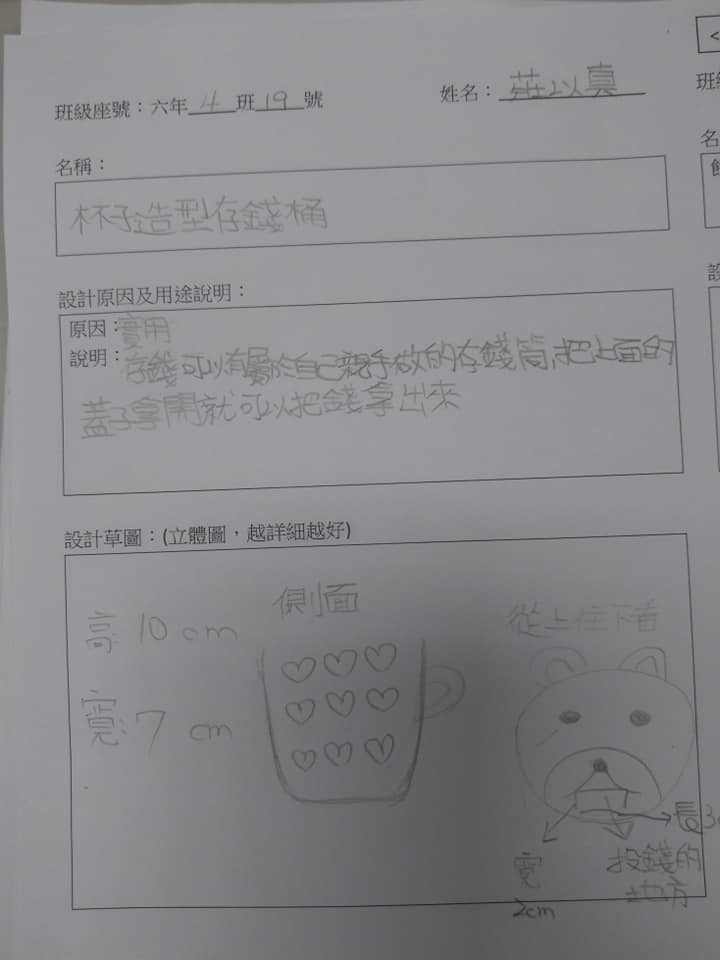 班級座號：六年 4 班 19 號
姓名：莊以真
名稱：
杯子造型存錢桶
設計原因及用途說明：
原因：實用
說明：存錢可以有屬於自己親手做的存錢筒,把上面的
蓋子拿開就可以把錢拿出來
設計草圖：(立體圖，越詳細越好)
側面
從上往下看
高:10 cm
寬:7 cm
長3
寬
2cm
投錢的
地方
<
班
名
設